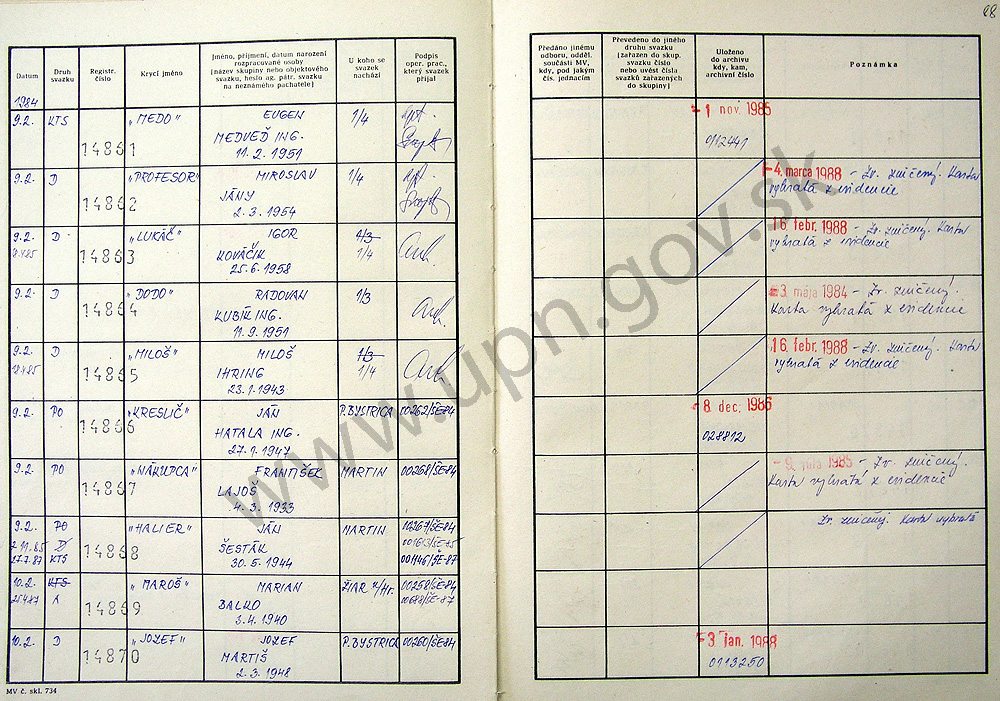 88
Datum
Druh svazku
Registr. číslo
Krycí jméno
Jméno, příjmení, datum narození
rozpracované osoby
[název skupiny nebo objektového
svazku, heslo ag. pátr. svazku
na neznámého pachatele]
U koho se
svazek
nachází
Podpis
oper. prac.,
který svazek
přijal
Předáno jinému
odboru, odděl.
součásti MV,
kdy, pod jakým
čís. jednacím
Převedeno do jiného
druhu svazku
(zařazen do skup.
svazku číslo
nebo uvést čísla
svazků zařazených
do skupiny)
Uloženo
do archivu
kdy, kam,
archivní číslo
Poznámka
1984
9.2. KTS 14861 "MEDO" EUGEN 1/4
MEDVEĎ ING.
11. 2. 1951
- 1 nov. 1985
912441
9.2. D 14862 "PROFESOR" MIROSLAV 1/4
JÁNY
2. 3. 1954
- 4. marca 1988 - Zv. zničený. Karta
vybratá z evidencie
9.2. D 14863 "LUKÁČ" IGOR 1/3
KOVÁČIK 1/4
25. 6. 1958
16 febr. 1988 - Zv. zničený. Karta
vybratá z evidencie
9.2. D 14864 "DODO" RADOVAN 1/3
KUBÍK ING.
11. 9. 1951
- 3 mája 1984 - Zv. zničený.
Karta vybratá z evidencie
9.2. D 14865 "MILOŠ" MILOŠ 1/3
IHRING 1/4
23. 1. 1943
16 febr. 1988 - Zv. zničený. Karta
vybratá z evidencie
9.2. PO 14866 "KRESLIČ" JÁN P. BYSTRICA 00262/ŠE-84
HATALA ING.
27. 1. 1947
- 8 dec. 1986
028812
9.2. PO 14867 "NÁKUPCA" FRANTIŠEK MARTIN 00268/ŠE-84
LAJOŠ
4. 3. 1933
- 9. 1985 - Zv. zničený.
Karta vybratá z evidencie
9.2. PO 14868 "HALIER" JÁN MARTIN
D ŠESTÁK
27.7.87 KTS 30. 5. 1944 001146/ŠE-87
Zv. zničený. Karta vybratá
10.2. KTS 14869 "MAROŠ" MARIAN ŽIAR n/Hr. 00258/ŠE-84
A BALKO 00688/ŠE-87
3. 4. 1940
10.2. D 14870 "JOZEF" JOZEF P. BYSTRICA 00260/ŠE84
MARTIŠ
2. 3. 1948
- 3 jan. 1988
0113250
MV č. skl. 734
www.upn.gov.sk